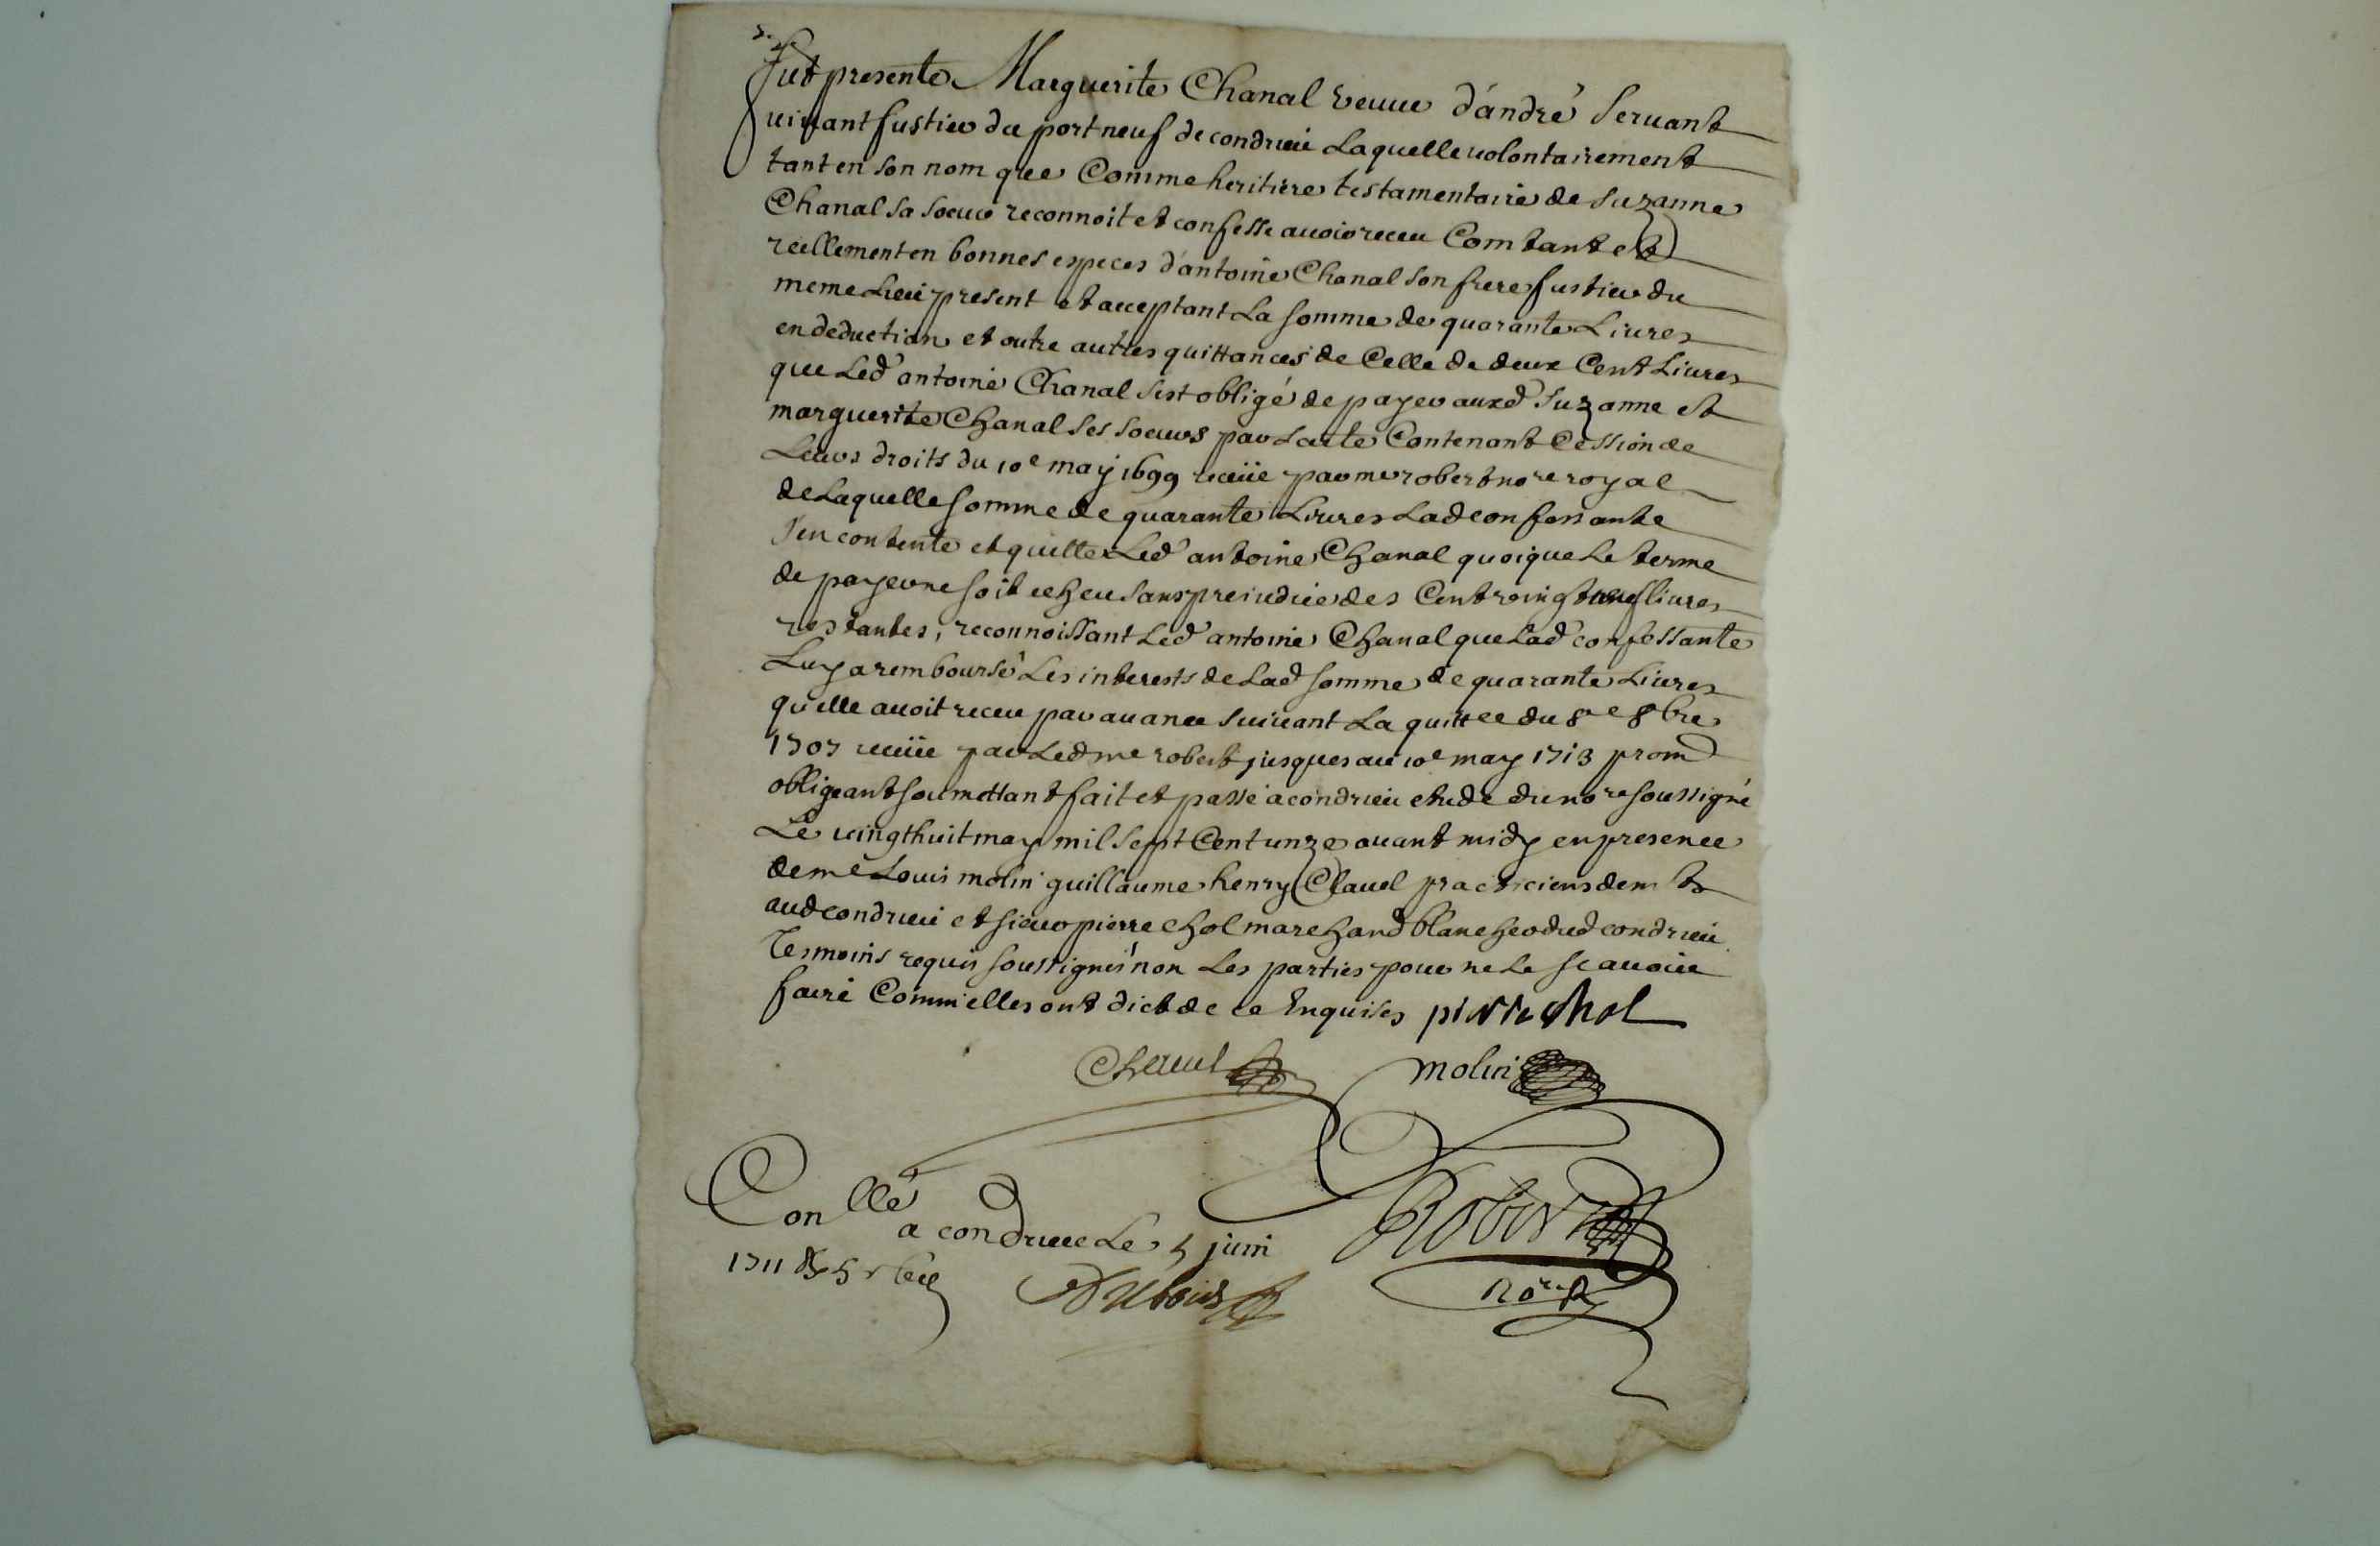 Fut presente Marguerite Chanal veuue d'andré Seruant
uiuant fustier du port neuf de condrieu Laquelle uolontairement
tant en son nom que Comme heritiere testamentaire de Suzanne
Chanal sa soeur reconnoit et confesse auoir receu Comtant et
réellement en bonnes especes d'antoine Chanal son frere fustier du
meme Lieu present et acceptant La somme de quarante Liures
en deduction et outre autres quittances de Celle de deux Cent Liures
que Led antoine Chanal s'est obligé de payer auxd Suzanne et
marguerite Chanal ses soeurs par Lacte Contenant Cession de
Leurs droits du 10e may 1699 receüe par me robert nore royal
de Laquelle somme de quarante Liures Lad confessante
s'en contente et quitte Led antoine Chanal quoique Le terme
de payer ne soit echeu sans preiudice des Cent uingt neuf liures
restantes, reconnoissant Led antoine Chanal que Lad confessante
Luy a remboursé Les interests de Lad somme de quarante Liures
qu'elle auoit receu par auance suiuant La quittce du 8e 8bre
1707 receüe par Led me robert jusques au 10e may 1713 prom
obligeant soumettant fait et passé a condrieu etude du nore soussigné
Le uingt huit may mil sept Cent unze auant midy en presence
de me Louis molin guillaume henry Clauel practiciens demts
aud condrieu et sieur pierre chol marchand blancher dud condrieu
Tesmoins requis soussignés non Les parties pour ne Le scauoir
faire Comm'elles ont dict de ce Enquises pierre chol
Clauel molin
Conllé
a condrieu Le 5 juin
1711
Robert
Dubois
nore R